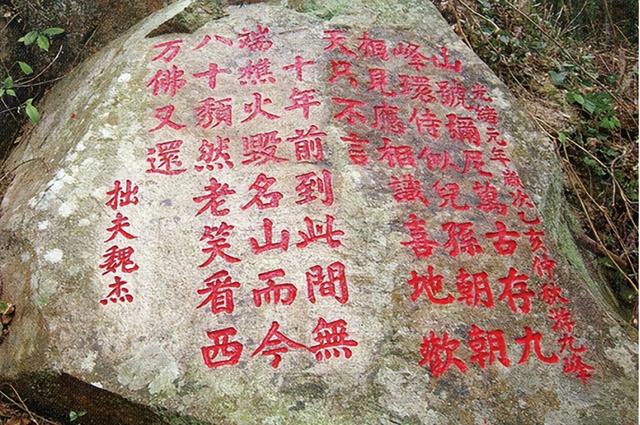 光緒元年歲次乙亥仲秋游九峰
山號彌尼萬古存九
峰環侍似兒孫朝朝
頻見應相識喜地歡
天只不言
一十年前到此間無
端樵火毀名山而今
八十頽然老笑看西
万佛又還
拙夫魏杰